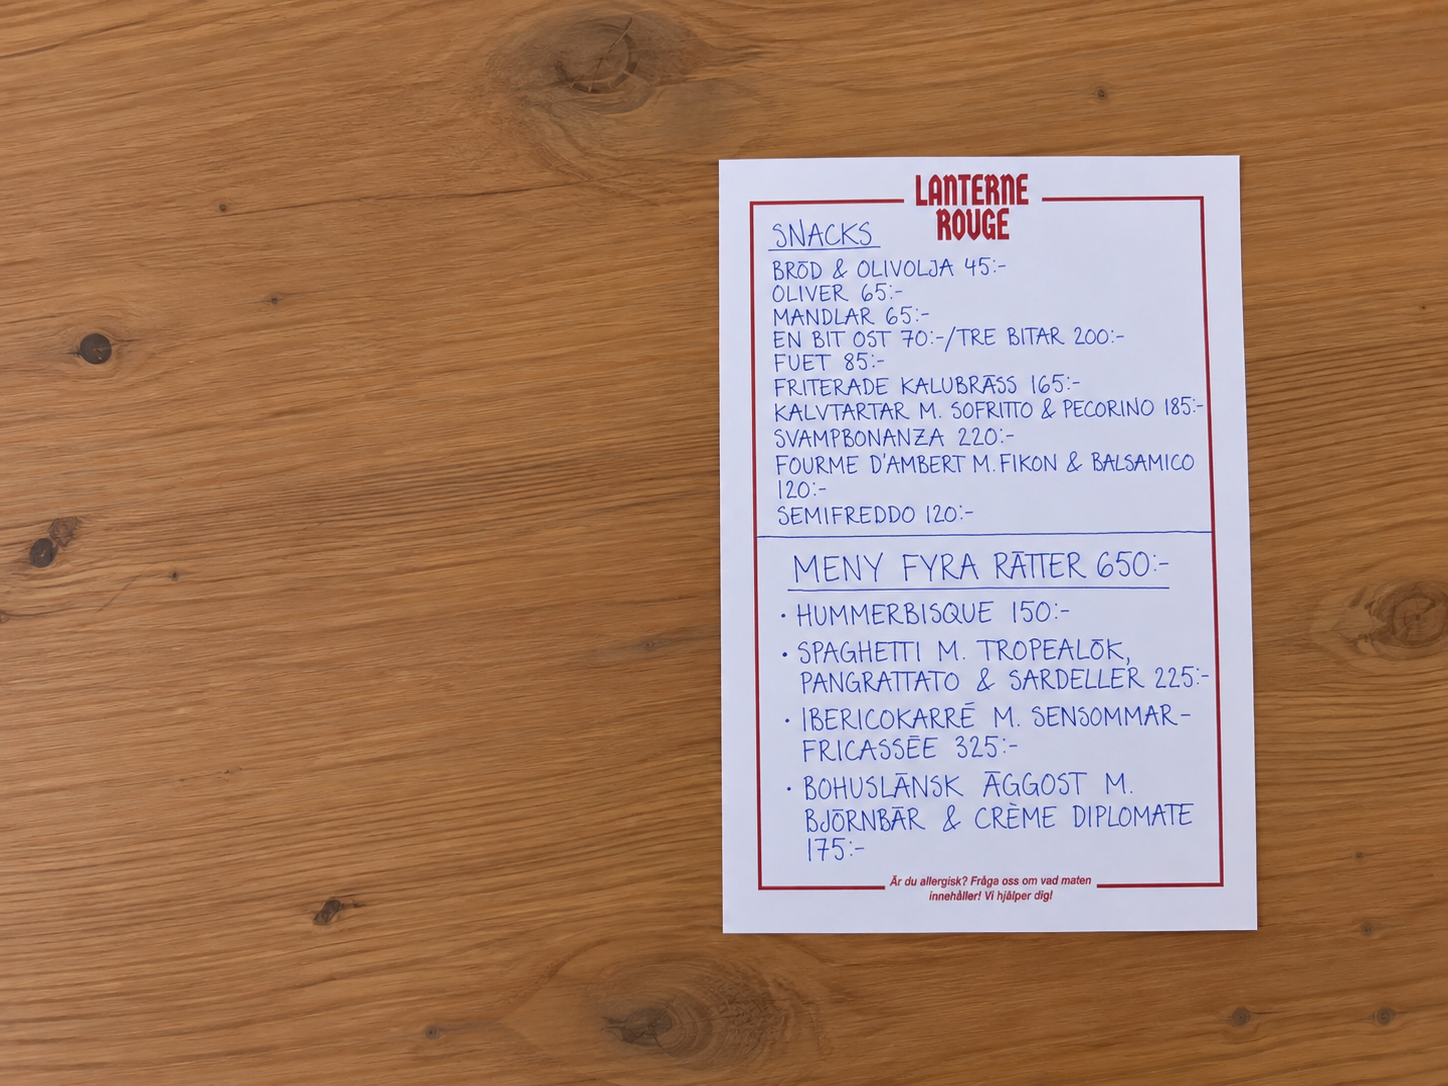 LANTERNE
ROUGE
SNACKS
BRÖD & OLIVOLJA 45:-
OLIVER 65:-
MANDLAR 65:-
EN BIT OST 70:-/TRE BITAR 200:-
FUET 85:-
FRITERADE KALUBRÄSS 165:-
KALVTARTAR M. SOFRITTO & PECORINO 185:-
SVAMPBONANZA 220:-
FOURME D'AMBERT M. FIKON & BALSAMICO
120:-
SEMIFREDDO 120:-
MENY FYRA RÄTTER 650:-
· HUMMERBISQUE 150:-
· SPAGHETTI M. TROPEALÖK,
PANGRATTATO & SARDELLER 225:-
· IBERICOKARRÉ M. SENSOMMAR-
FRICASSÉE 325:-
· BOHUSLÄNSK ÄGGOST M.
BJÖRNBÄR & CRÈME DIPLOMATE
175:-
Är du allergisk? Fråga oss om vad maten
innehåller! Vi hjälper dig!